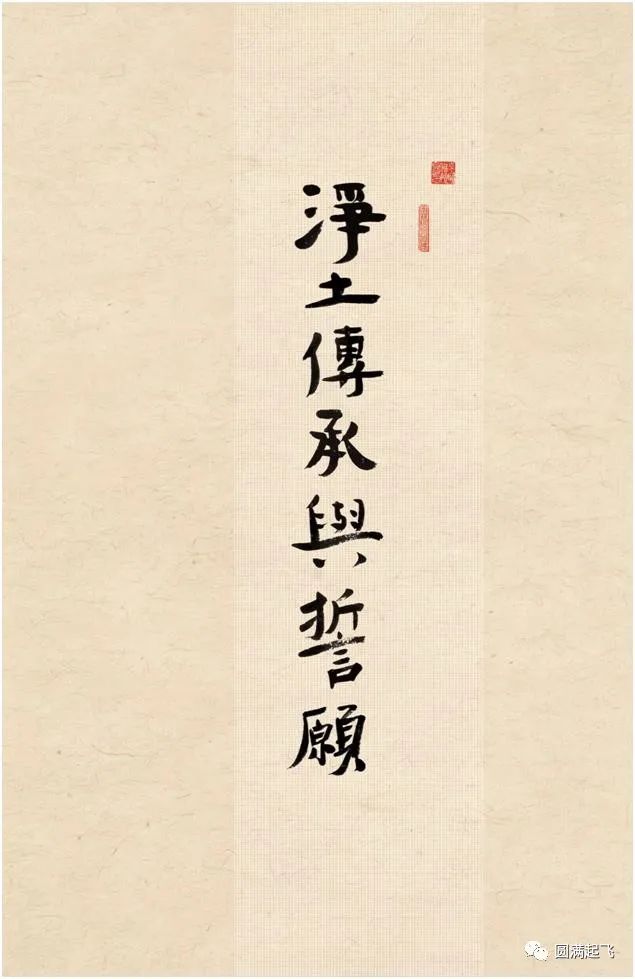 淨土傳承與誓願
圆满起飞